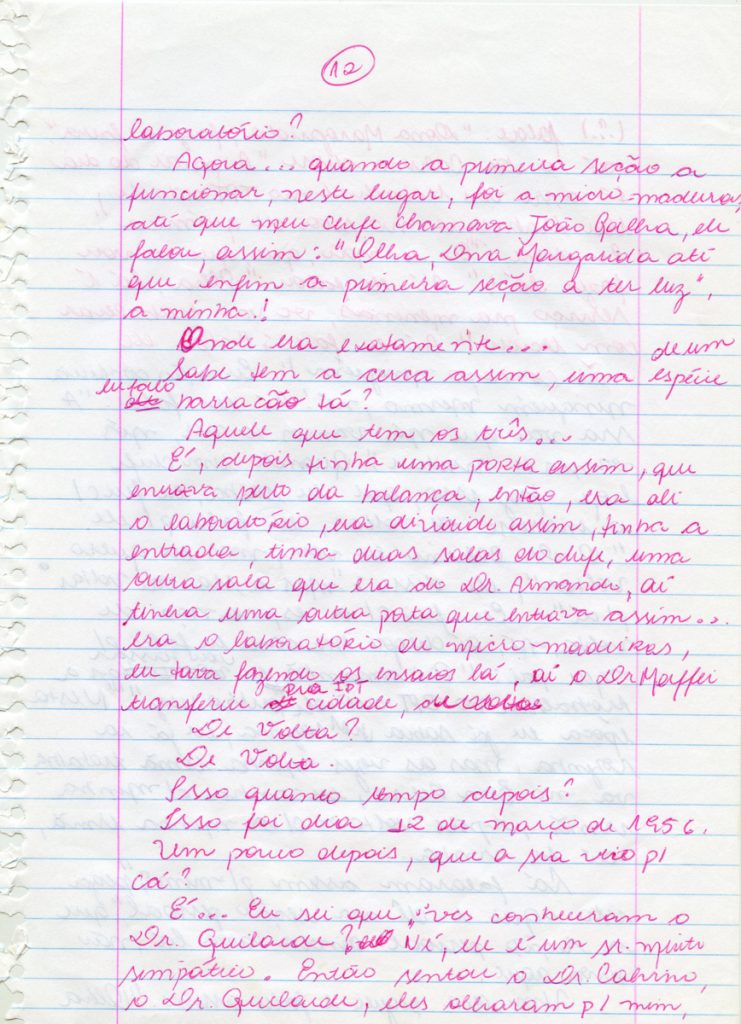 12
laboratório?
Agora... quando a primeira seção a
funcionar, neste lugar, foi a micro-madeiras,
até que meu chefe chamava João Galha, ele
falou, assim: "Olha, Dna Margarida até
que enfim a primeira seção a ter luz",
a minha.!
Onde era exatamente...
Sabe tem a cerca assim, uma espécie de um
eu falo barracão tá?
Aquele que tem os três...
É, depois tinha uma porta assim, que
entrava perto da balança, então, era ali
o laboratório, era dividido assim, tinha a
entrada, tinha duas salas do chefe, uma
outra sala que era do Dr. Armando, aí
tinha uma outra porta que entrava assim...
era o laboratório de micro-madeiras,
eu tava fazendo os ensaios lá, aí o Dr Maffei
transferiu pra IPT cidade,
De Volta?
De Volta.
Isso quanto tempo depois?
Isso foi dia 12 de março de 1956.
Um pouco depois, que a sra veio p/
cá?
É... Eu sei que, vcs conheceram o
Dr. ? Né, ele é um sr. muito
simpático. Então sentou o Dr.
o Dr. , eles olharam p/ mim,